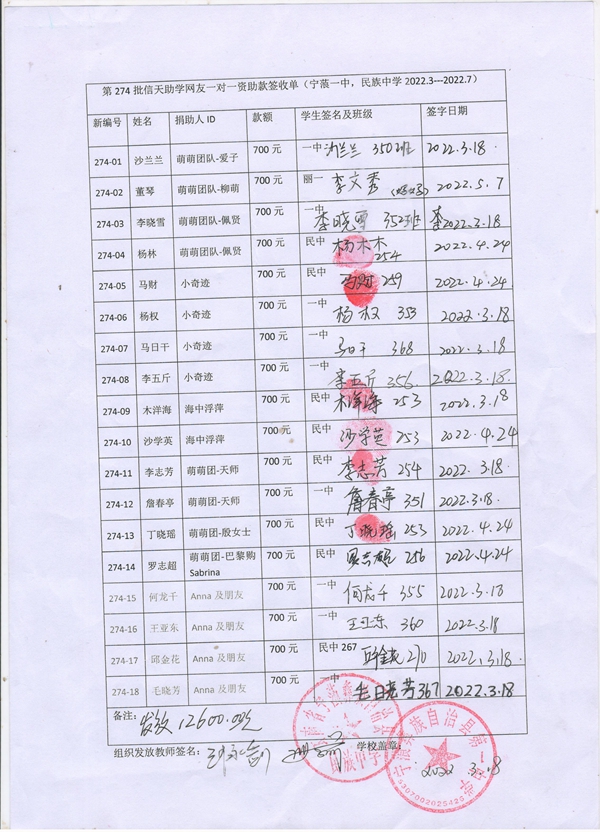 第 274 批信天助学网友一对一资助款签收单（宁蒗一中，民族中学 2022.3---2022.7）
新编号 姓名 捐助人 ID 款额 学生签名及班级 签字日期
274-01 沙兰兰 萌萌团队-爱子 700 元 一中 沙兰兰 350班 2022.3.18.
274-02 董琴 萌萌团队-柳萌 700 元 丽一 李文秀 2022.5.7
274-03 李晓雪 萌萌团队-佩贤 700 元 一中 李晓雪 352班 2022.3.18
274-04 杨林 萌萌团队-佩贤 700 元 民中 杨木木 254 2022.4.24
274-05 马财 小奇迹 700 元 民中 马财 259 2022.4.24
274-06 杨权 小奇迹 700 元 一中 杨权 353 2022.3.18
274-07 马日干 小奇迹 700 元 一中 马日干 368 2022.3.18
274-08 李五斤 小奇迹 700 元 一中 李五斤 356. 2022.3.18.
274-09 木洋海 海中浮萍 700 元 民中 木洋海 253 2022.3.18
274-10 沙学英 海中浮萍 700 元 民中 沙学英 253 2022.4.24
274-11 李志芳 萌萌团-天师 700 元 民中 李志芳 254 2022.3.18.
274-12 詹春亭 萌萌团-天师 700 元 一中 詹春亭 351 2022.3.18.
274-13 丁晓瑶 萌萌团-殷女士 700 元 民中 丁晓瑶 253 2022.4.24
274-14 罗志超 萌萌团-巴黎购 700 元 民中 罗志超 256 2022.4.24
Sabrina
274-15 何龙千 Anna 及朋友 700 元 一中 何龙千 355 2022.3.18
274-16 王亚东 Anna 及朋友 700 元 一中 王亚东 360 2022.3.18
274-17 邱金花 Anna 及朋友 700 元 民中 267 邱金花 270 2022.3.18.
274-18 毛晓芳 Anna 及朋友 700 元 一中 毛晓芳 367 2022.3.18
备注： 发放12600.00元
组织发放教师签名： 学校盖章： 2022 3.18
民族中学
宁蒗彝族自治县第一中学
5307002025425